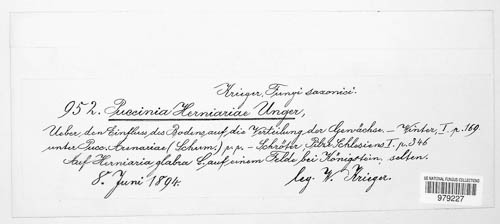 Krieger, Fungi saxonici.
952. Puccinia Herniariae Unger,
Ueber den Einfluss des Bodens auf die Verteilung der Gewächse. – Winter, I. p. 169
unter Pucc. Arenariae (Schum.) p. p. – Schröter, Pilze Schlesiens I. p. 346
Auf Herniaria glabra L. auf einem Felde bei Königstein, selten.
8. Juni 1894. leg. W. Krieger.
US NATIONAL FUNGUS COLLECTIONS
979227